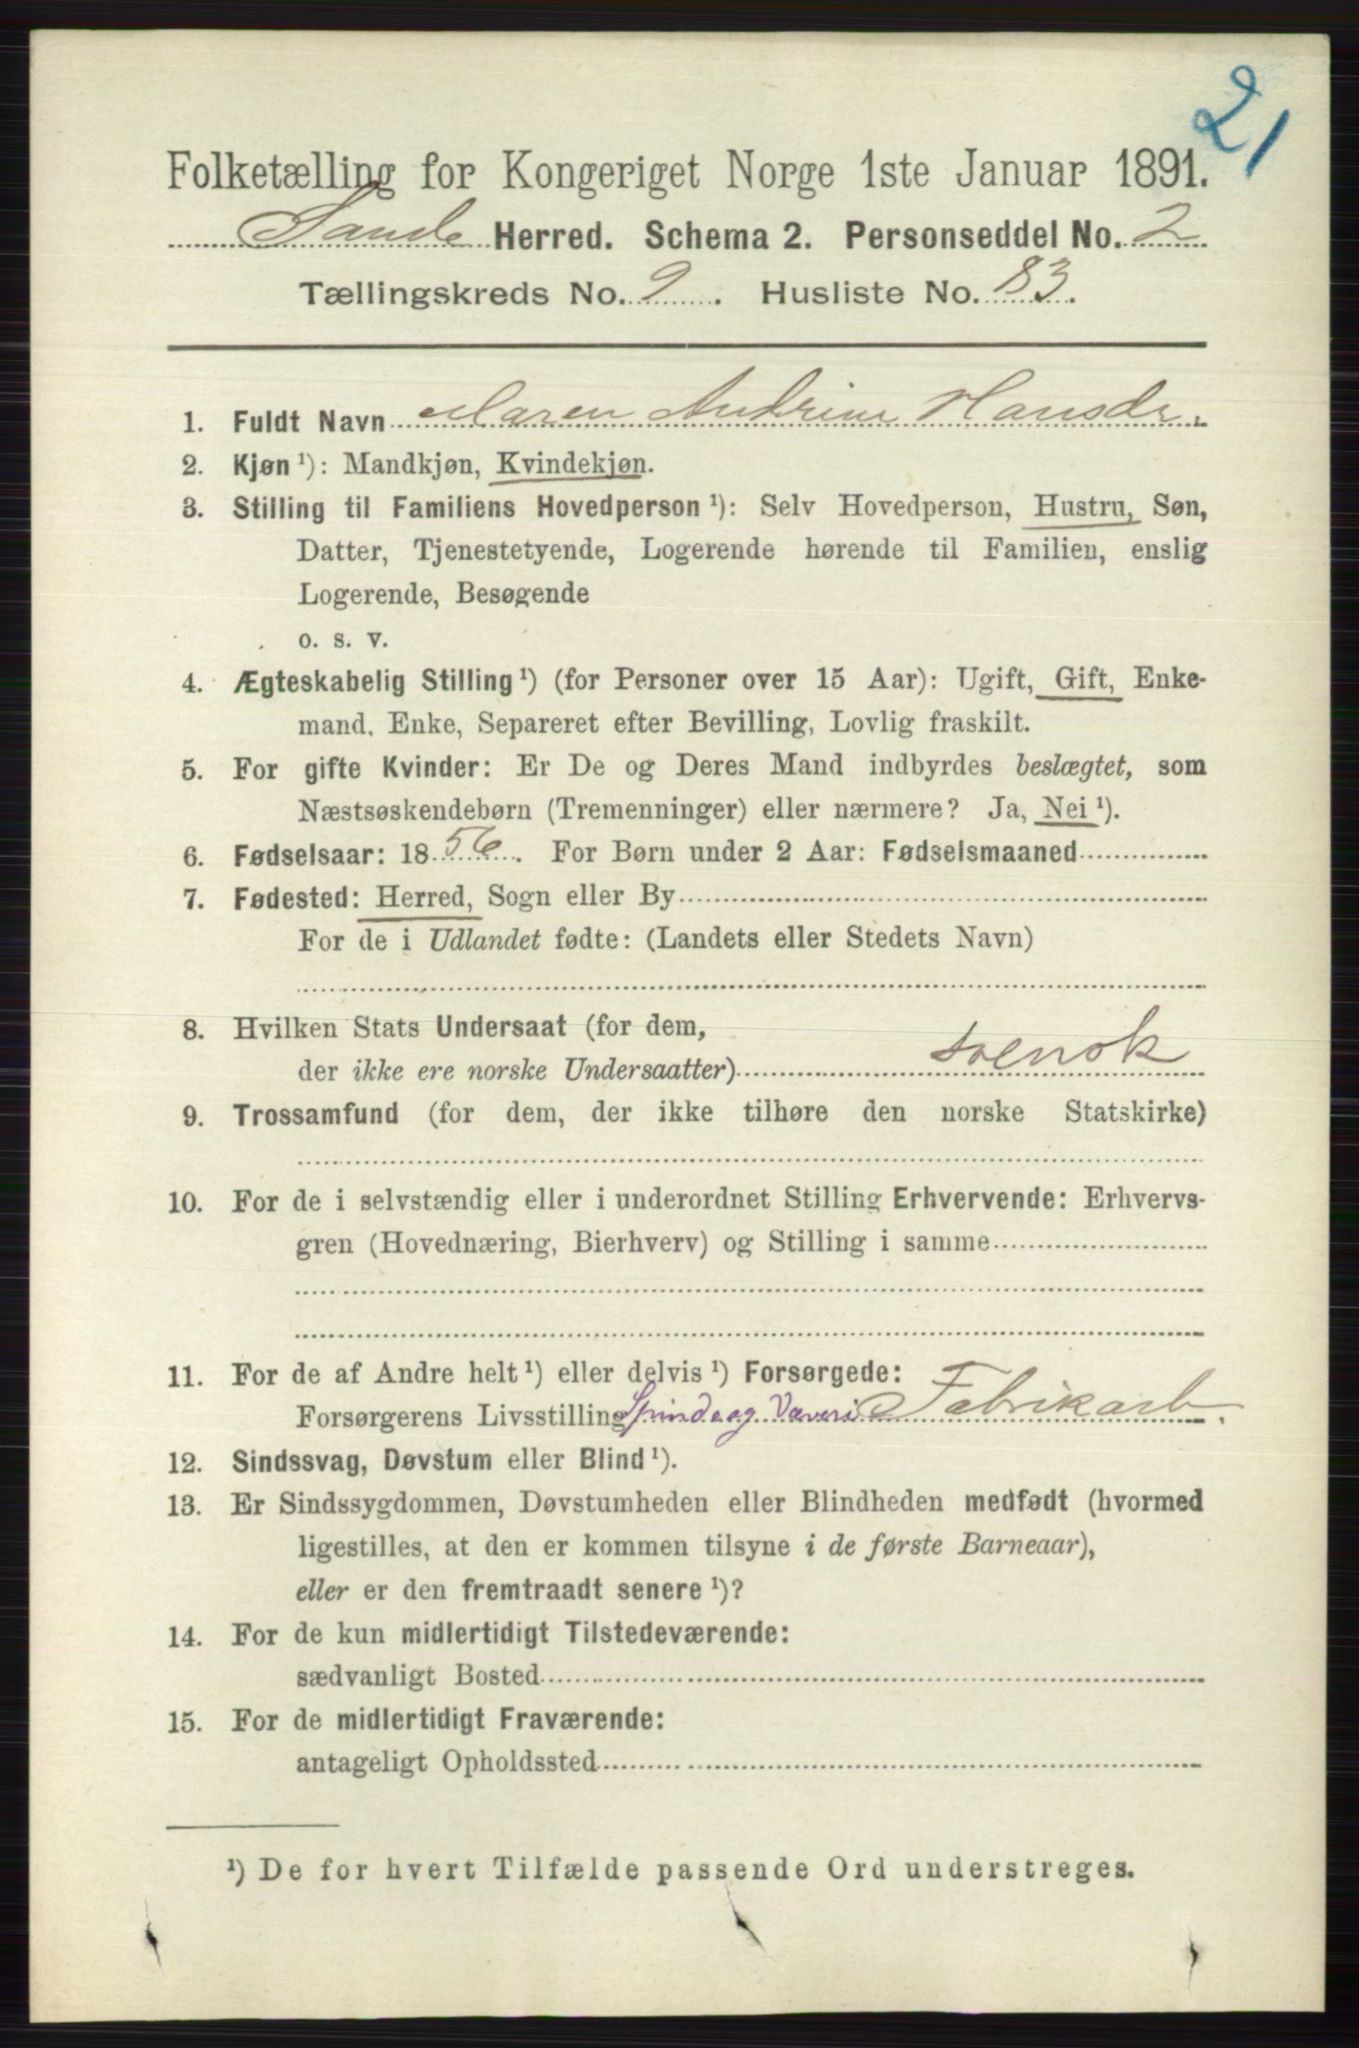 21
Folketælling for Kongeriget Norge 1ste Januar 1891.
Sande Herred. Schema 2. Personseddel No. 2
Tællingskreds No. 9. Husliste No. 83.
1. Fuldt Navn Maren Andrine Hansdr.
2. Kjøn ¹): Mandkjøn, Kvindekjøn.
3. Stilling til Familiens Hovedperson ¹): Selv Hovedperson, Hustru, Søn,
Datter, Tjenestetyende, Logerende hørende til Familien, enslig
Logerende, Besøgende
o. s. v.
4. Ægteskabelig Stilling ¹) (for Personer over 15 Aar): Ugift, Gift, Enke-
mand, Enke, Separeret efter Bevilling, Lovlig fraskilt.
5. For gifte Kvinder: Er De og Deres Mand indbyrdes beslægtet, som
Næstsøskendebørn (Tremenninger) eller nærmere? Ja, Nei ¹).
6. Fødselsaar: 1856. For Børn under 2 Aar: Fødselsmaaned
7. Fødested: Herred, Sogn eller By
For de i Udlandet fødte: (Landets eller Stedets Navn)
8. Hvilken Stats Undersaat (for dem,
der ikke ere norske Undersaatter) svensk
9. Trossamfund (for dem, der ikke tilhøre den norske Statskirke)
10. For de i selvstændig eller i underordnet Stilling Erhvervende: Erhvervs-
gren (Hovednæring, Bierhverv) og Stilling i samme
11. For de af Andre helt ¹) eller delvis ¹) Forsørgede:
Forsørgerens Livsstilling Spinde og Væveri Fabrikarb.
12. Sindssvag, Døvstum eller Blind ¹).
13. Er Sindssygdommen, Døvstumheden eller Blindheden medfødt (hvormed
ligestilles, at den er kommen tilsyne i de første Barneaar),
eller er den fremtraadt senere ¹)?
14. For de kun midlertidigt Tilstedeværende:
sædvanligt Bosted
15. For de midlertidigt Fraværende:
antageligt Opholdssted
¹) De for hvert Tilfælde passende Ord understreges.